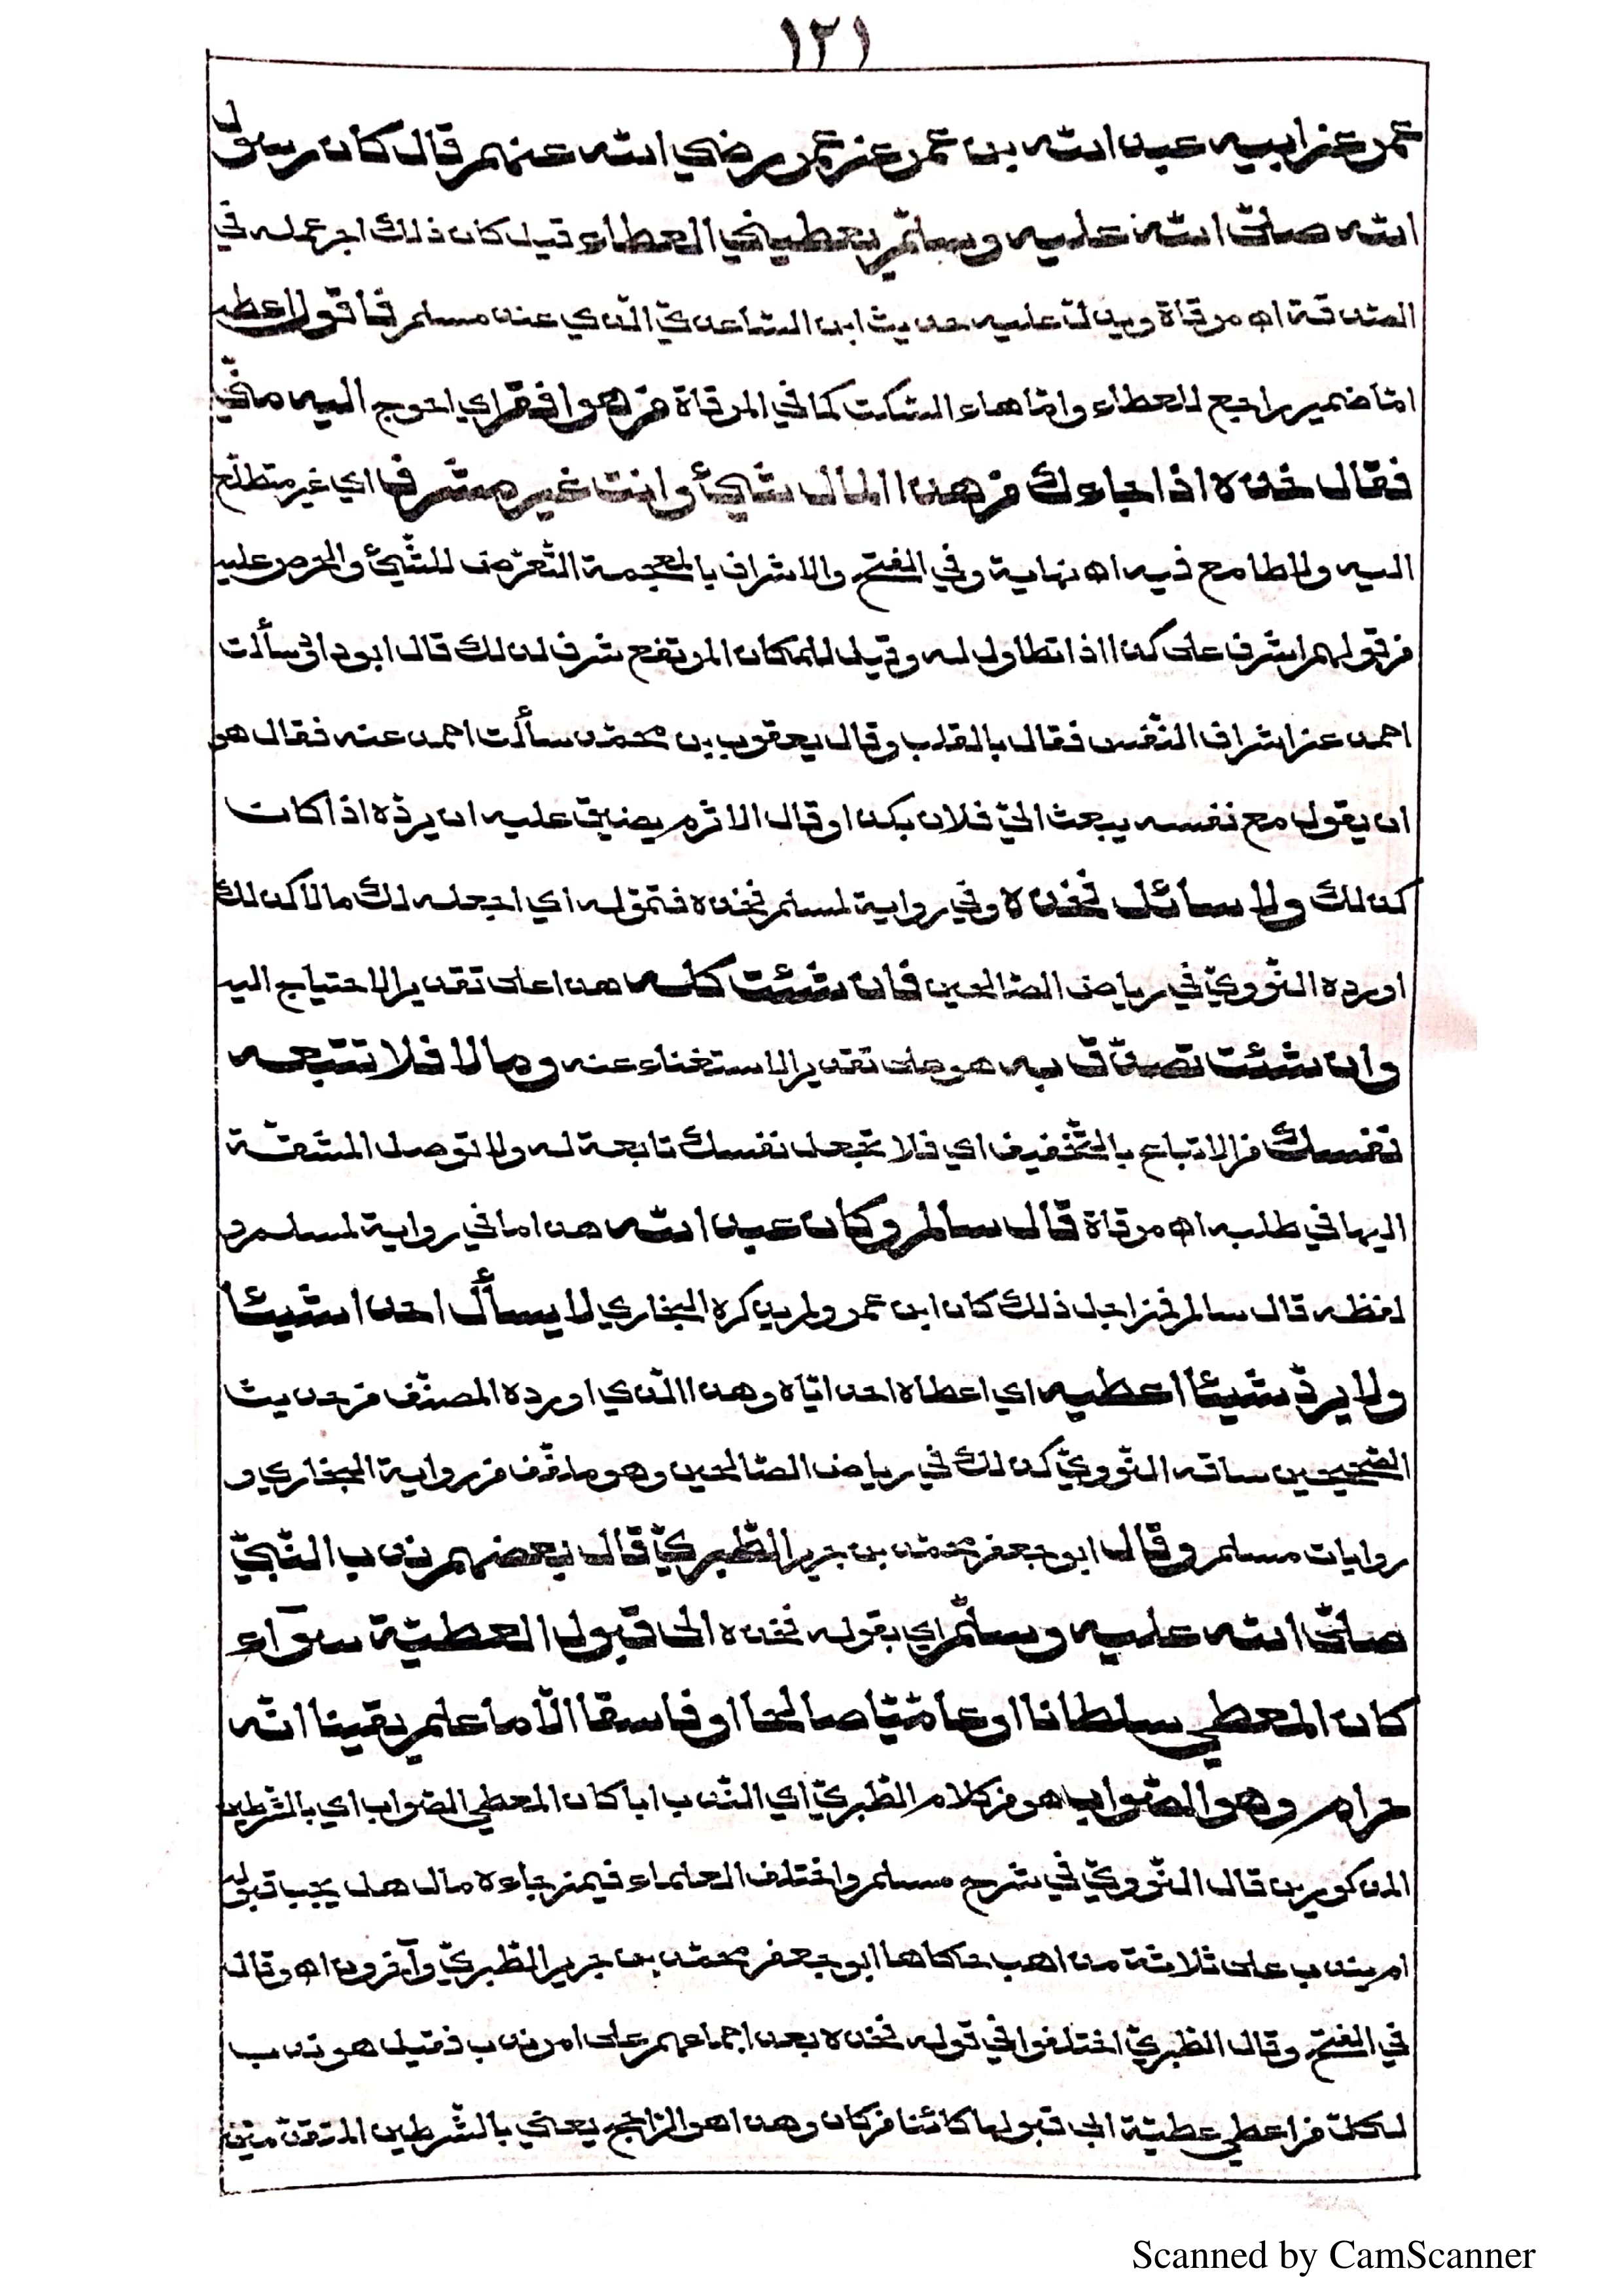 ١٢١
عمر عن ابيه عبد الله بن عمر عن عمر رضي الله عنهم قال كان رسول
الله صلّى الله عليه وسلّم يعطيني العطاء قيل كان ذلك اجر عمله في
الصّدقة اه مرقاة ويدلّ عليه حديث ابن السّاعديّ الّذي عند مسلم فاقول اعطه
امّا ضمير راجع للعطاء وامّا هاء السّكت كما في المرقاة من هو افقر اي احوج اليه منّي
فقال خذه اذا جاءك من هذا المال شيئ وانت غير مشرف اي غير متطلّع
اليه ولا طامع فيه اه نهاية وفي الفتح والاشراف بالمعجمة التّعرّض للشّيئ والحرص عليه
من قولهم اشرف على كذا اذا تطاول له وقيل للمكان المرتفع شرف لذلك قال ابو داود سألت
احمد عن اشراف النّفس فقال بالقلب وقال يعقوب بن محمّد سألت احمد عنه فقال هو
ان يقول مع نفسه يبعث اليّ فلان بكذا وقال الاثرم يضيق عليه ان يردّه اذا كان
كذلك ولا سائل فخذه وفي رواية لمسلم فخذه فتموّله اي اجعله لك مالا كذلك
اورده النّوويّ في رياض الصّالحين فان شئت كله هذا على تقدير الاحتياج اليه
وان شئت تصدّق به هو على تقدير الاستغناء عنه وما لا فلا تتبعه
نفسك من الاتباع بالتّخفيف اي فلا تجعل نفسك تابعة له ولا توصل المشقّة
اليها في طلبه اه مرقاة قال سالم وكان عبد الله هذا ما في رواية لمسلم و
لفظه قال سالم فمن اجل ذلك كان ابن عمر ولم يذكره البخاري لا يسأل احدا شيئا
ولا يردّ شيئا اعطيه اي اعطاه احد ايّاه وهذا الّذي اورده المصنّف من حديث
الصّحيحين ساقه النّوويّ كذلك في رياض الصّالحين وهو ملفّف من رواية البخاري و
روايات مسلم وقال ابو جعفر محمّد بن جرير الطّبريّ قال بعضهم ندب النّبيّ
صلّى الله عليه وسلّم اي بقوله فخذه الى قبول العطيّة سوآء
كان المعطي سلطانا او عامّيّا صالحا او فاسقا الّا ما علم يقينا انّه
حرام وهو الصّواب هو من كلام الطّبريّ اي النّدب ايا كان المعطي الصّواب اي بالشّرطين
المذكورين قال النّوويّ في شرح مسلم واختلف العلماء فيمن جاءه مال هل يجب قبوله
ام يندب على ثلاثة مذاهب حكاها ابو جعفر محمّد بن جرير الطّبريّ وآخرون اه وقال
في الفتح وقال الطّبريّ اختلفوا في قوله فخذه بعد اجماعهم على امر ندب فقيل هو ندب
لكلّ من اعطي عطيّة ابى قبولها كائنا من كان وهذا هو الرّاجح يعني بالشّرطين المتقدّمين
Scanned by CamScanner